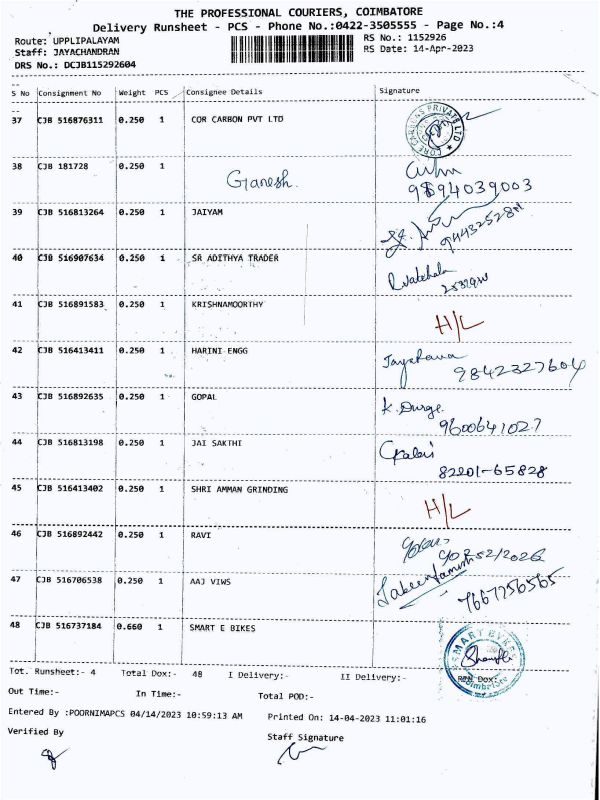 THE PROFESSIONAL COURIERS, COIMBATORE
Delivery Runsheet - PCS - Phone No.:0422-3505555 - Page No.:4
Route: UPPLIPALAYAM RS No.: 1152926
Staff: JAYACHANDRAN RS Date: 14-Apr-2023
DRS No.: DCJB115292604
S No Consignment No Weight PCS Consignee Details Signature
37 CJB 516876311 0.250 1 COR CARBON PVT LTD
38 CJB 181728 0.250 1 Ganesh.
9894039003
39 CJB 516813264 0.250 1 JAIYAM
40 CJB 516907634 0.250 1 SR ADITHYA TRADER
41 CJB 516891583 0.250 1 KRISHNAMOORTHY
H/L
42 CJB 516413411 0.250 1 HARINI ENGG
9842327604
43 CJB 516892635 0.250 1 GOPAL
K. Durge
9600641027
44 CJB 516813198 0.250 1 JAI SAKTHI
82201-65828
45 CJB 516413402 0.250 1 SHRI AMMAN GRINDING
H/L
46 CJB 516892442 0.250 1 RAVI
47 CJB 516706538 0.250 1 AAJ VIWS
7667256565
48 CJB 516737184 0.660 1 SMART E BIKES
Tot. Runsheet:- 4 Total Dox:- 48 I Delivery:- II Delivery:- RTN Dox:-
Out Time:- In Time:- Total POD:-
Entered By :POORNIMAPCS 04/14/2023 10:59:13 AM Printed On: 14-04-2023 11:01:16
Verified By Staff Signature